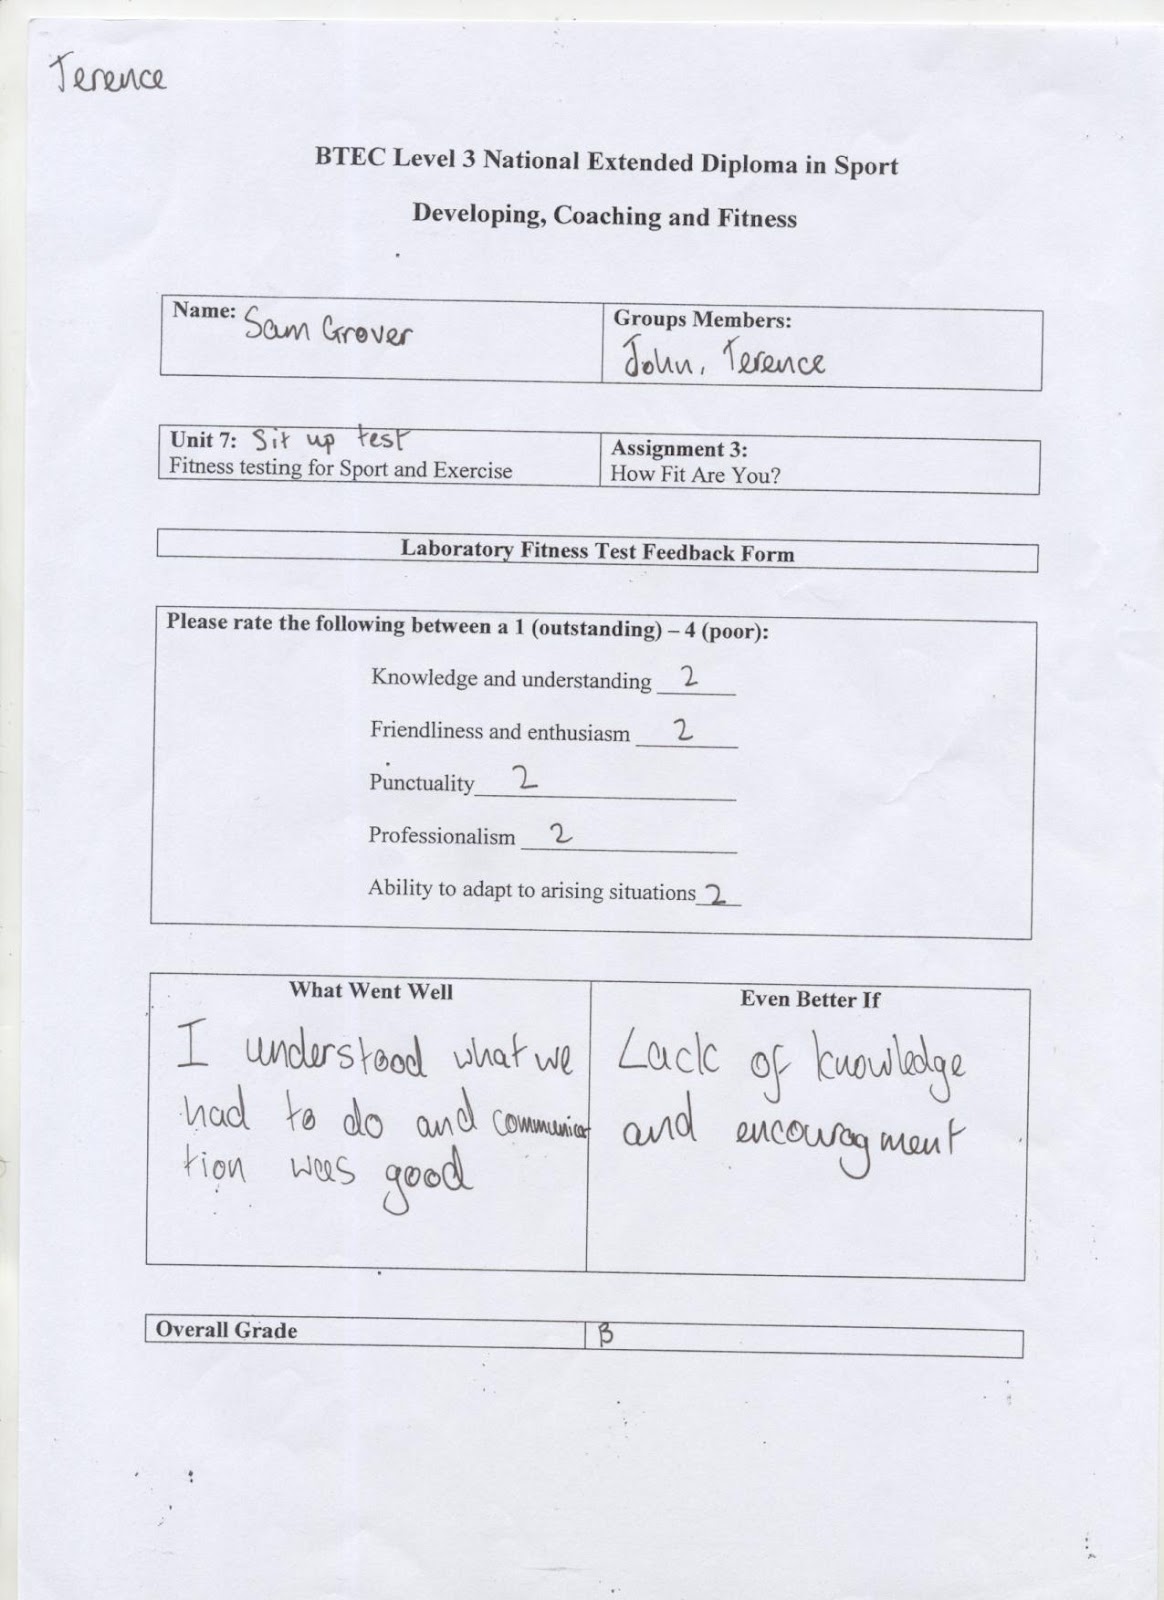 Terence
BTEC Level 3 National Extended Diploma in Sport
Developing, Coaching and Fitness
Name: Sam Grover
Groups Members:
John, Terence
Unit 7: Sit up test
Fitness testing for Sport and Exercise
Assignment 3:
How Fit Are You?
Laboratory Fitness Test Feedback Form
Please rate the following between a 1 (outstanding) – 4 (poor):
Knowledge and understanding 2
Friendliness and enthusiasm 2
Punctuality 2
Professionalism 2
Ability to adapt to arising situations 2
What Went Well
I understood what we
had to do and communica
tion was good
Even Better If
Lack of knowledge
and encouragment
Overall Grade
B